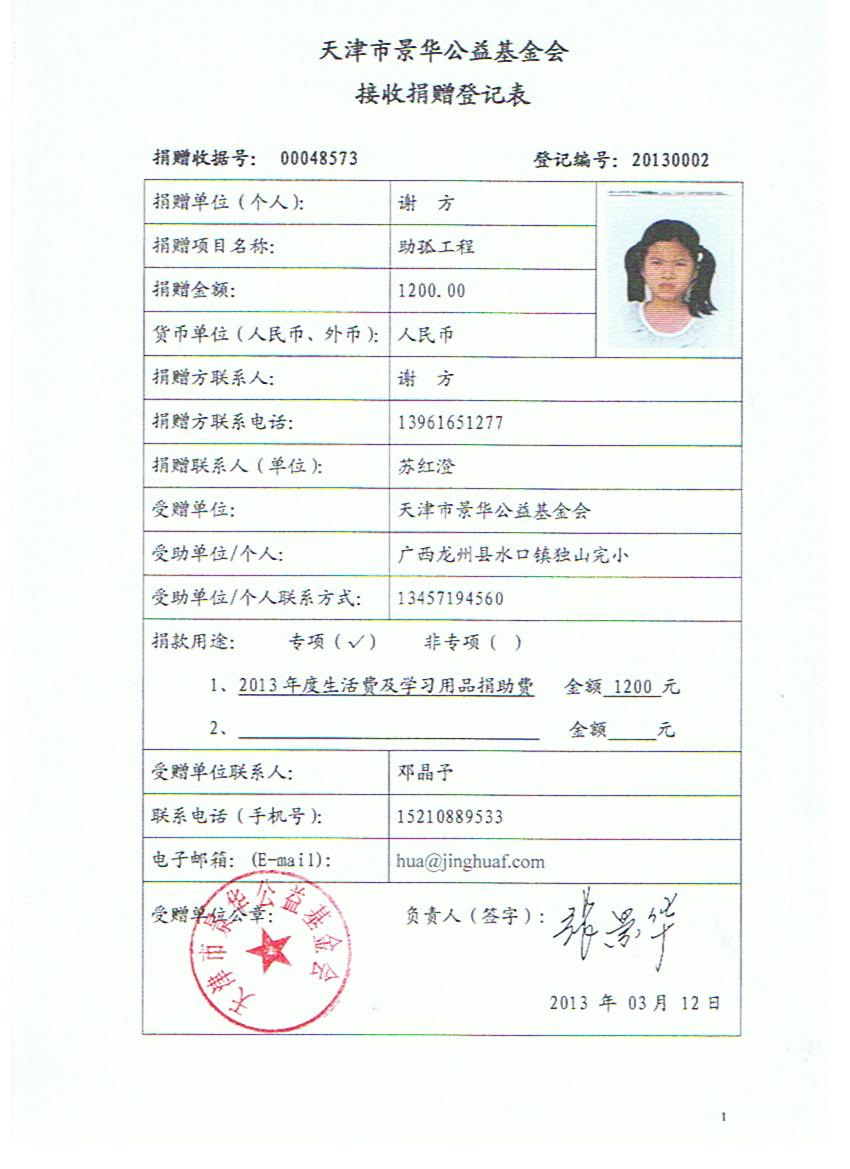 天津市景华公益基金会
接收捐赠登记表
捐赠收据号： 00048573 登记编号：20130002
捐赠单位（个人）： 谢 方
捐赠项目名称： 助孤工程
捐赠金额： 1200.00
货币单位（人民币、外币）： 人民币
捐赠方联系人： 谢 方
捐赠方联系电话： 13961651277
捐赠联系人（单位）： 苏红澄
受赠单位： 天津市景华公益基金会
受助单位/个人： 广西龙州县水口镇独山完小
受助单位/个人联系方式： 13457194560
捐款用途： 专项（√） 非专项（ ）
1、2013年度生活费及学习用品捐助费 金额 1200 元
2、 金额 元
受赠单位联系人： 邓晶予
联系电话（手机号）： 15210889533
电子邮箱：（E-mail）： hua@jinghuaf.com
受赠单位公章： 负责人（签字）：张景华
天津市景华公益基金会
2013 年 03月 12日
1